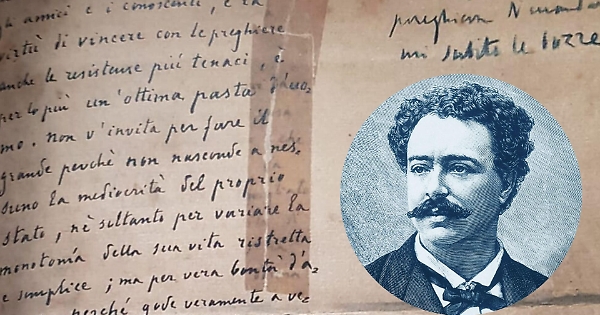 gli amici e i conoscenti, e la
virtù di vincere con le preghiere
anche le resistenze più tenaci, è
per lo più un'ottima pasta d'uo-
mo. Non v'invita per fare il
grande perchè non nasconde a nes-
suno la mediocrità del proprio
stato, nè soltanto per variare la
monotonía della sua vita ristretta
e semplice; ma per vera bontà d'a-
perché gode veramente a ve-
preghiera
mi subito le bozze